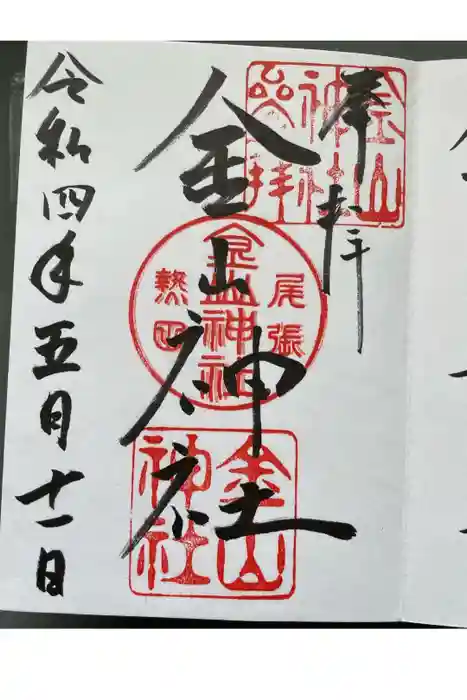 奉拝
金山神社
令和四年五月十一日
金山神社参拝
尾張
金山神社
熱田
金山神社